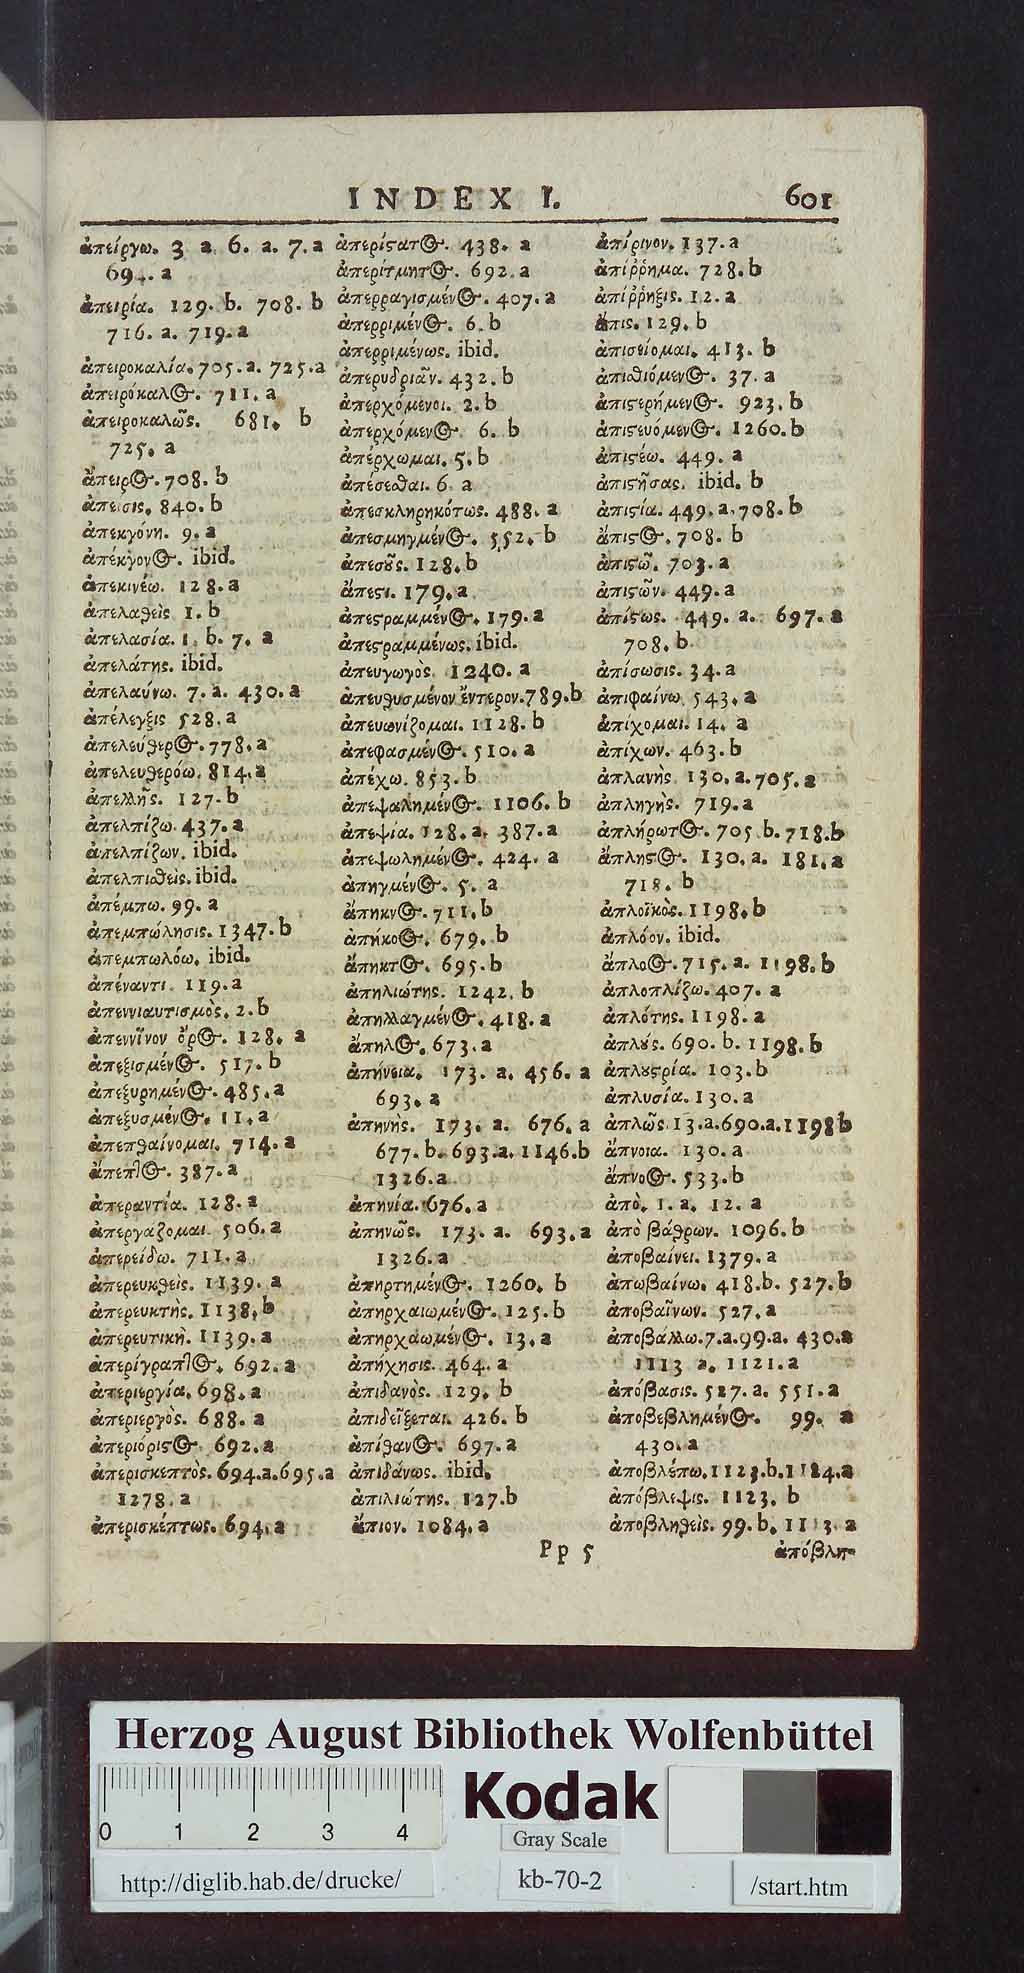 INDEX I. 601
ἀπείργω. 3 a 6. a. 7. a
694. a
ἀπειρία. 129. b. 708. b
716. a. 719. a
ἀπειροκαλία. 705. a. 725. a
ἀπειρόκαλος. 711. a
ἀπειροκαλῶς. 681. b
725. a
ἄπειρος. 708. b
ἄπεισις. 840. b
ἀπεκγόνη. 9. a
ἀπέκγονος. ibid.
ἀπεκινέω. 128. a
ἀπελαθεὶς 1. b
ἀπελασία. 1. b. 7. a
ἀπελάτης. ibid.
ἀπελαύνω. 7. a. 430. a
ἀπέλεγξις 528. a
ἀπελεύθερος. 778. a
ἀπελευθερόω. 814. a
ἀπελλῆς. 127. b
ἀπελπίζω. 437. a
ἀπελπίζων. ibid.
ἀπελπισθεὶς. ibid.
ἀπέμπω. 99. a
ἀπεμπώλησις. 1347. b
ἀπεμπωλόω. ibid.
ἀπέναντι. 119. a
ἀπεννιαυτισμὸς. 2. b
ἀπεννῖνον ὄρος. 128. a
ἀπεξισμένος. 517. b
ἀπεξυρημένος. 485. a
ἀπεξυσμένος. 11. a
ἀπεπθαίνομαι. 714. a
ἄπεπτος. 387. a
ἀπεραντία. 128. a
ἀπεργάζομαι. 506. a
ἀπερείδω. 711. a
ἀπερευκθεὶς. 1139. a
ἀπερευκτὴς. 1138. b
ἀπερευτικὴ. 1139. a
ἀπερίγραπτος. 692. a
ἀπεριεργία. 698. a
ἀπεριεργὸς. 688. a
ἀπεριόριστος. 692. a
ἀπερισκεπτὸς. 694. a. 695. a
1278. a
ἀπερισκέπτως. 694. a
ἀπερίστατος. 438. a
ἀπερίτμητος. 692. a
ἀπερραγισμένος. 407. a
ἀπερριμένος. 6. b
ἀπερριμένως. ibid.
ἀπερυδριᾶν. 432. b
ἀπερχόμενοι. 2. b
ἀπερχόμενος. 6. b
ἀπέρχωμαι. 5. b
ἀπέσεσθαι. 6 a
ἀπεσκληρηκότως. 488. a
ἀπεσμηγμένος. 552. b
ἀπεσοῦς. 128. b
ἄπεστι. 179. a
ἀπεστραμμένος. 179. a
ἀπεστραμμένως. ibid.
ἀπευγωγὸς. 1240. a
ἀπευθυσμένον ἔντερον. 789. b
ἀπευωνίζομαι. 1128. b
ἀπεφασμένος. 510. a
ἀπέχω. 853. b
ἀπεψαλημένος. 1106. b
ἀπεψία. 128. a. 387. a
ἀπεψωλημένος. 424. a
ἀπηγμένος. 5. a
ἄπηκνος. 711. b
ἀπήκοος. 679. b
ἄπηκτος. 695. b
ἀπηλιώτης. 1242. b
ἀπηλλαγμένος. 418. a
ἄπηλος. 673. a
ἀπήνεια. 173. a. 456. a
693. a
ἀπηνὴς. 173. a. 676. a
677. b. 693. a. 1146. b
1326. a
ἀπηνία. 676. a
ἀπηνῶς. 173. a. 693. a
1326. a
ἀπηρτημένος. 1260. b
ἀπηρχαιωμένος. 125. b
ἀπηρχάωμένος. 13. a
ἀπήχησις. 464. a
ἀπιδανὸς. 129. b
ἀπιδεῖξεται. 426. b
ἀπίθανος. 697. a
ἀπιδάνως. ibid.
ἀπιλιώτης. 127. b
ἄπιον. 1084. a
ἀπίρινον. 137. a
ἀπίῤῥημα. 728. b
ἀπίῤῥηξις. 12. a
ἄπις. 129. b
ἀπισείομαι. 413. b
ἀπισθιόμενος. 37. a
ἀπιστερήμενος. 923. b
ἀπιστευόμενος. 1260. b
ἀπιστέω. 449. a
ἀπιστῆσας. ibid. b
ἀπιστία. 449. a. 708. b
ἄπιστος. 708. b
ἀπιστῶ. 703. a
ἀπιστῶν. 449. a
ἀπίστως. 449. a. 697. a
708. b
ἀπίσωσις. 34. a
ἀπιφαίνω. 543. a
ἀπίχομαι. 14. a
ἀπίχων. 463. b
ἀπλανὴς 130. a. 705. a
ἀπληγὴς. 719. a
ἀπλήρωτος. 705. b. 718. b
ἄπληστος. 130. a. 181. a
718. b
ἀπλοϊκὸς. 1198. b
ἀπλόον. ibid.
ἄπλοος. 715. a. 1198. b
ἀπλοπλίζω. 407. a
ἀπλότης. 1198. a
ἀπλοῦς. 690. b. 1198. b
ἀπλουστρία. 103. b
ἀπλυσία. 130. a
ἀπλῶς. 13. a. 690. a. 1198 b
ἄπνοια. 130. a
ἄπνοος. 533. b
ἀπὸ. 1. a. 12. a
ἀπὸ βάθρων. 1096. b
ἀποβαίνει. 1379. a
ἀπωβαίνω. 418. b. 527. b
ἀποβαῖνων. 527. a
ἀποβάλλω. 7. a. 99. a. 430. a
1113 a. 1121. a
ἀπόβασις. 527. a. 551. a
ἀποβεβλημένος. 99. a
430. a
ἀποβλέπω. 1123. b. 1124. a
ἀπόβλεψις. 1123. b
ἀποβληθεὶς. 99. b. 1113. a
Pp 5 ἀπόβλη-
Herzog August Bibliothek Wolfenbüttel
0 1 2 3 4
Kodak
Gray Scale
http://diglib.hab.de/drucke/ kb-70-2 /start.htm